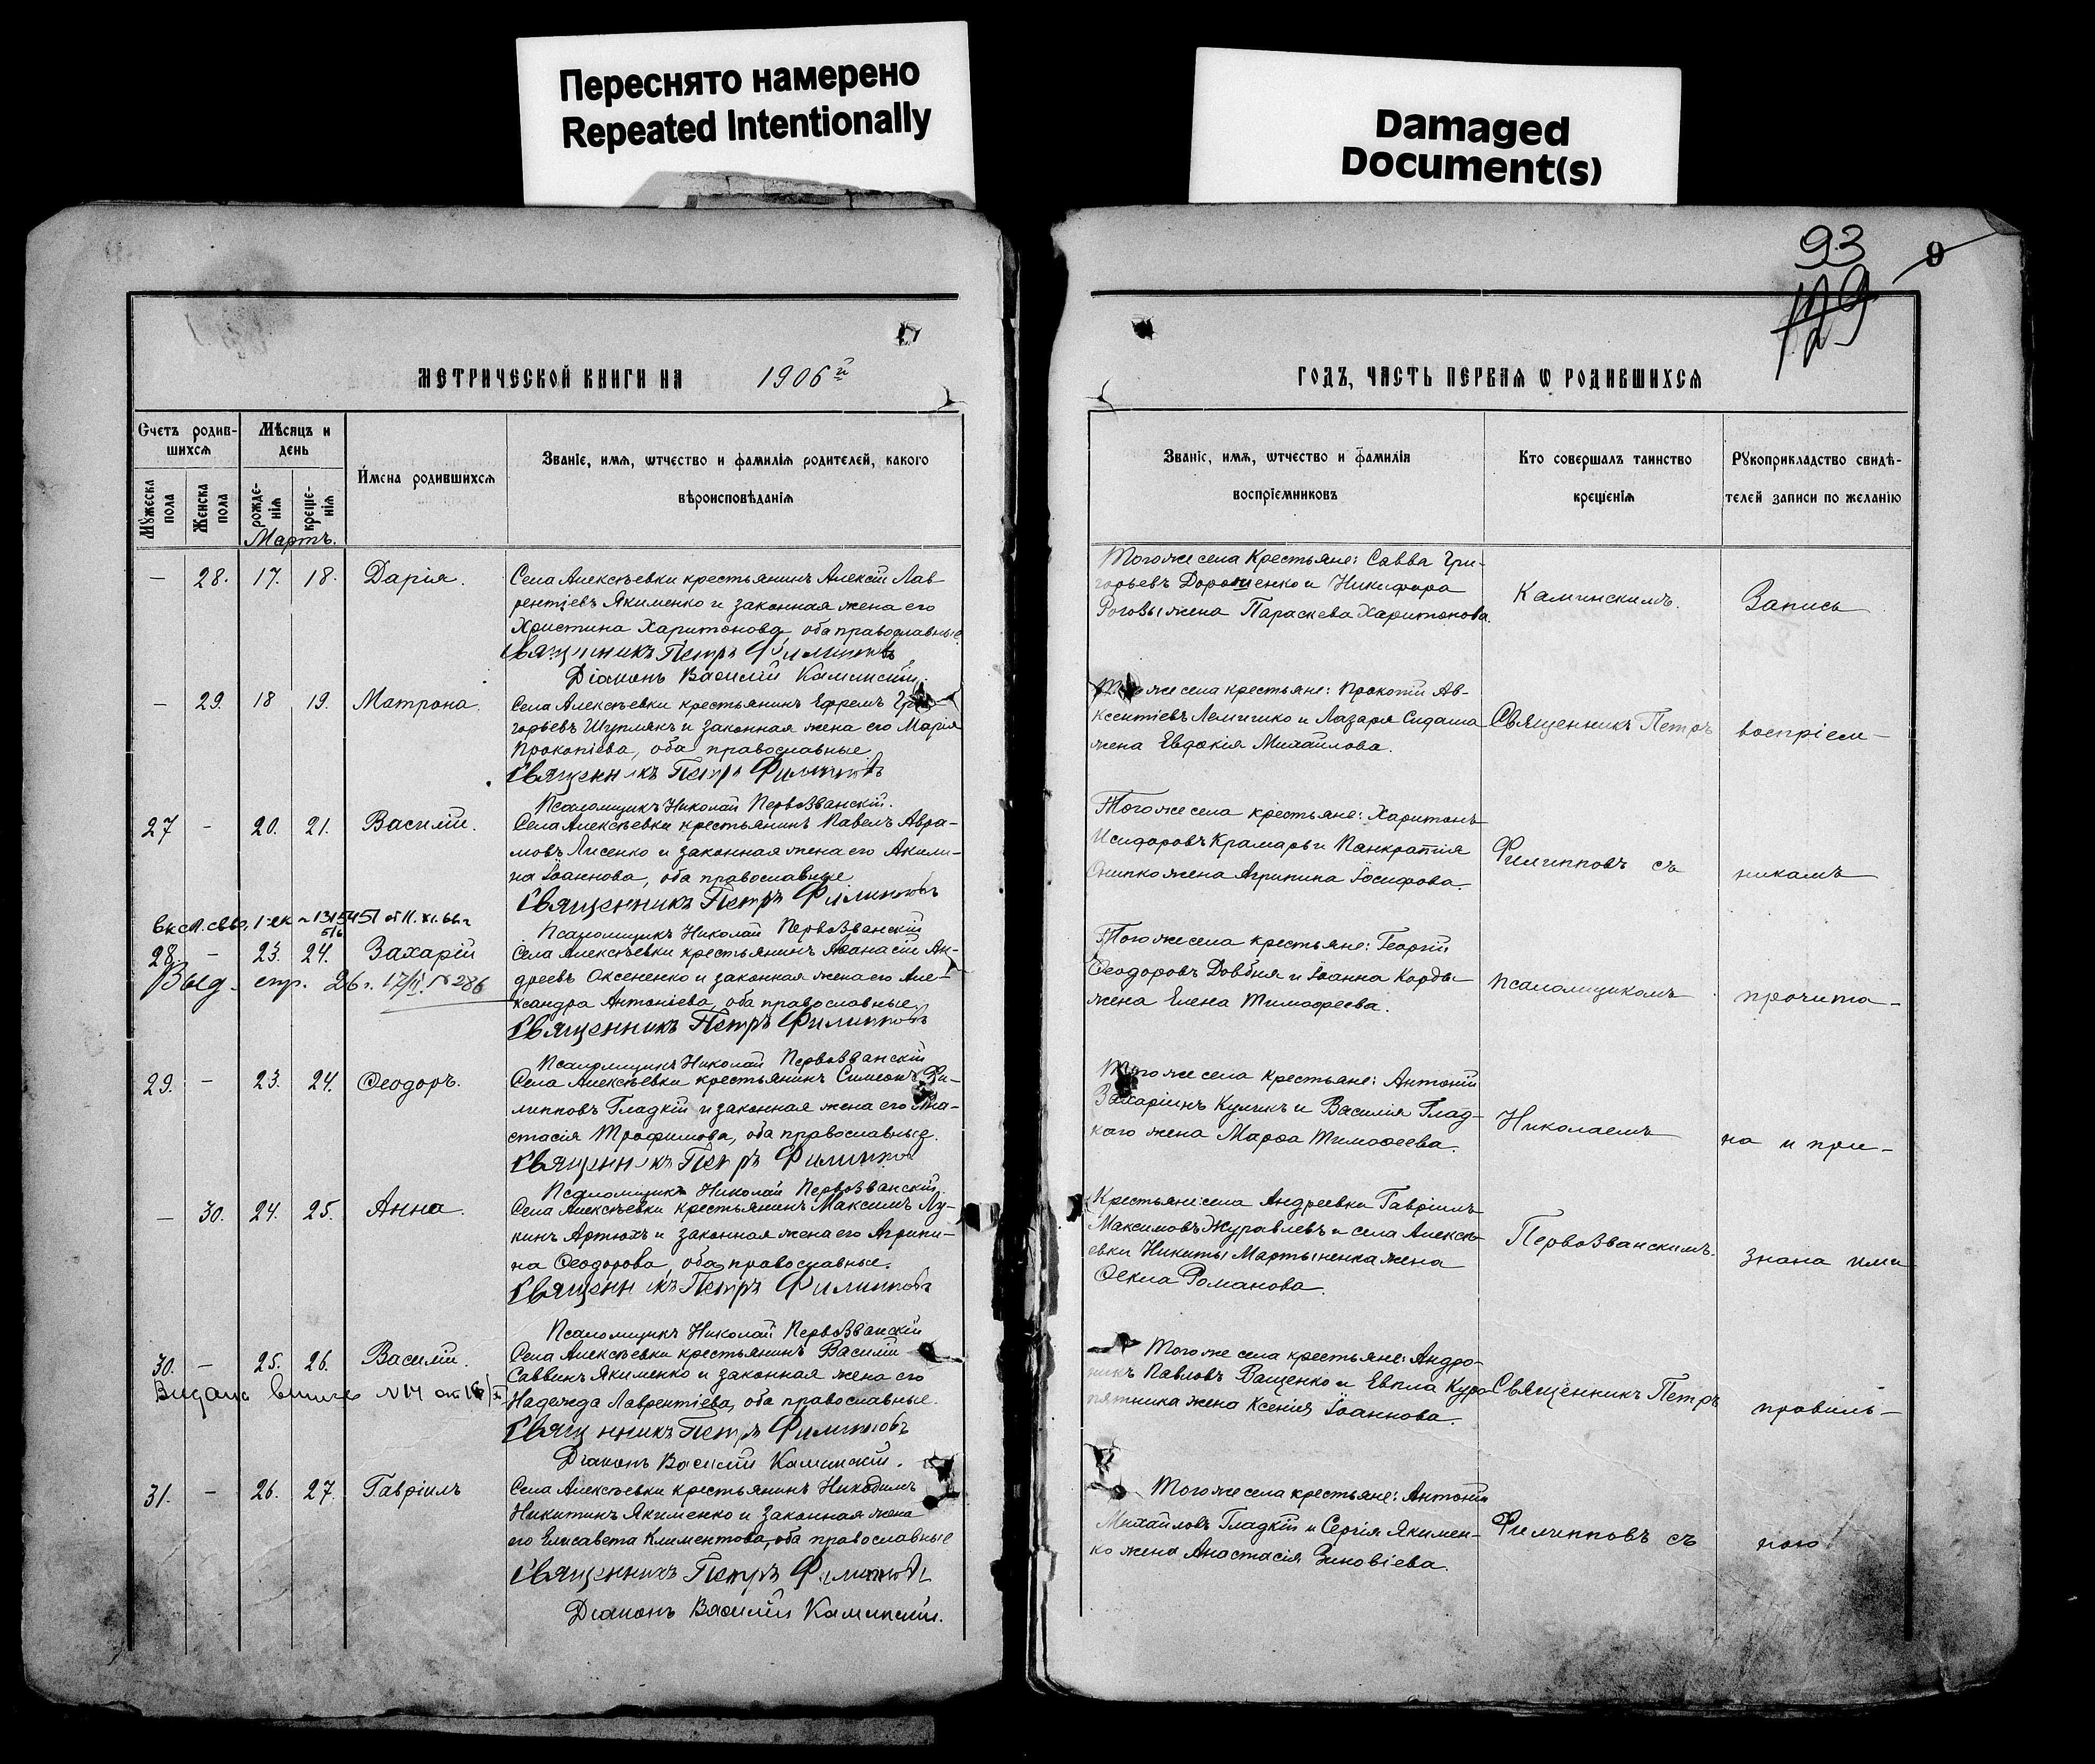 Переснято намерено
Repeated Intentionally
Damaged
Document(s)
93
9
129
МЕТРИЧЕСКОЙ КНИГИ НА 1906й
Счетъ родив-
шихся
Мѣсяцъ и
день
Мужеска
пола
Женска
пола
рожде-
нія
креще-
нія
Имена родившихся
Званіе, имя, ѡтчество и фамилія родителей, какого
вѣроисповѣданія
Мартъ.
— 28. 17. 18. Дарія. Села Алексѣевки крестьянинъ Алексій Лав
рентіевъ Якименко и законная жена его
Христина Харитонова, оба православные
Священникъ Петръ Филипповъ
Діаконъ Василій Каминскій.
— 29. 18 19. Матрона. Села Алексѣевки крестьянинъ Ефремъ Гри-
горьевъ и законная жена его Марія
Прокопіева, оба православные
Священникъ Петръ Филипповъ
Псаломщикъ Николай Первозванскій.
27 — 20. 21. Василій. Села Алексѣевки крестьянинъ Павелъ Авра-
мовъ Лисенко и законная жена его Акили-
на Іоаннова, оба православные
Священникъ Петръ Филипповъ
Псаломщикъ Николай Первозванскій
28. — 23. 24. Захарій Села Алексѣевки крестьянинъ Аѳанасій Ан-
дреевъ Оксененко и законная жена его Але-
Выд. спр. 26 г. 17/II. № 286
ксандра Антоніева, оба православные
Священникъ Петръ Филипповъ
Псаломщикъ Николай Первозванскій
29. — 23. 24. Ѳеодоръ. Села Алексѣевки крестьянинъ Симеонъ Фи-
липповъ Гладкій и законная жена его Ана-
стасія Трофимова, оба православные.
Священникъ Петръ Филипповъ
Псаломщикъ Николай Первозванскій.
— 30. 24. 25. Анна. Села Алексѣевки крестьянинъ Максимъ Лу-
кинъ Артюхъ и законная жена его Агрипи-
на Ѳеодорова, оба православные.
Священникъ Петръ Филипповъ
Псаломщикъ Николай Первозванскій
30. — 25. 26. Василій. Села Алексѣевки крестьянинъ Василій
Саввинъ Якименко и законная жена его
Надежда Лаврентіева, оба православные.
Священникъ Петръ Филипповъ
Діаконъ Василій Каминскій.
31. — 26. 27. Гавріилъ Села Алексѣевки крестьянинъ Никодимъ
Никитинъ Якименко и законная жена
его Елисавета Климентова, оба православные
Священникъ Петръ Филипповъ
Діаконъ Василій Каминскій.
ГОДЪ, ЧАСТЬ ПЕРВАЯ Ѡ РОДИВШИХСЯ
Званіе, имя, ѡтчество и фамилія
воспріемниковъ
Кто совершалъ таинство
крещенія
Рукоприкладство свидѣ-
телей записи по желанію
Того же села крестьяне: Савва Гри-
горьевъ Дорошенко и Никифора
Роговы жена Параскева Харитонова.
Каминскимъ.
Запись
Того же села крестьяне: Прокопій Ав-
ксентіевъ и Лазаря Сидаша
жена Евдокія Михайлова.
Священникъ Петръ
воспріем-
Того же села крестьяне: Харитонъ
Исидоровъ Крамарь и Панкратія
Онипко жена Агрипина Іосифова.
Филипповъ съ
никамъ
Того же села крестьяне: Георгій
Ѳеодоровъ Довбня и Іоанна Корды
жена Елена Тимофеева.
псаломщикомъ
прочита-
Того же села крестьяне: Антоній
Захаріинъ Куликъ и Василія Глад-
каго жена Марѳа Тимоѳеева.
Николаемъ
на и при-
Крестьяне: села Андреевки Гавріилъ
Максимовъ Журавлевъ и села Алексѣ-
евки Никиты Мартыненка жена
Ѳекла Романова.
Первозванскимъ.
знана ими
Того же села крестьяне: Андро-
никъ Павловъ Ващенко и Евпла Куро-
пятника жена Ксенія Іоаннова.
Священникъ Петръ
правиль-
Того же села крестьяне: Антоній
Михайловъ Гладкій и Сергія Якимен-
ко жена Анастасія Зиновіева.
Филипповъ съ
ною